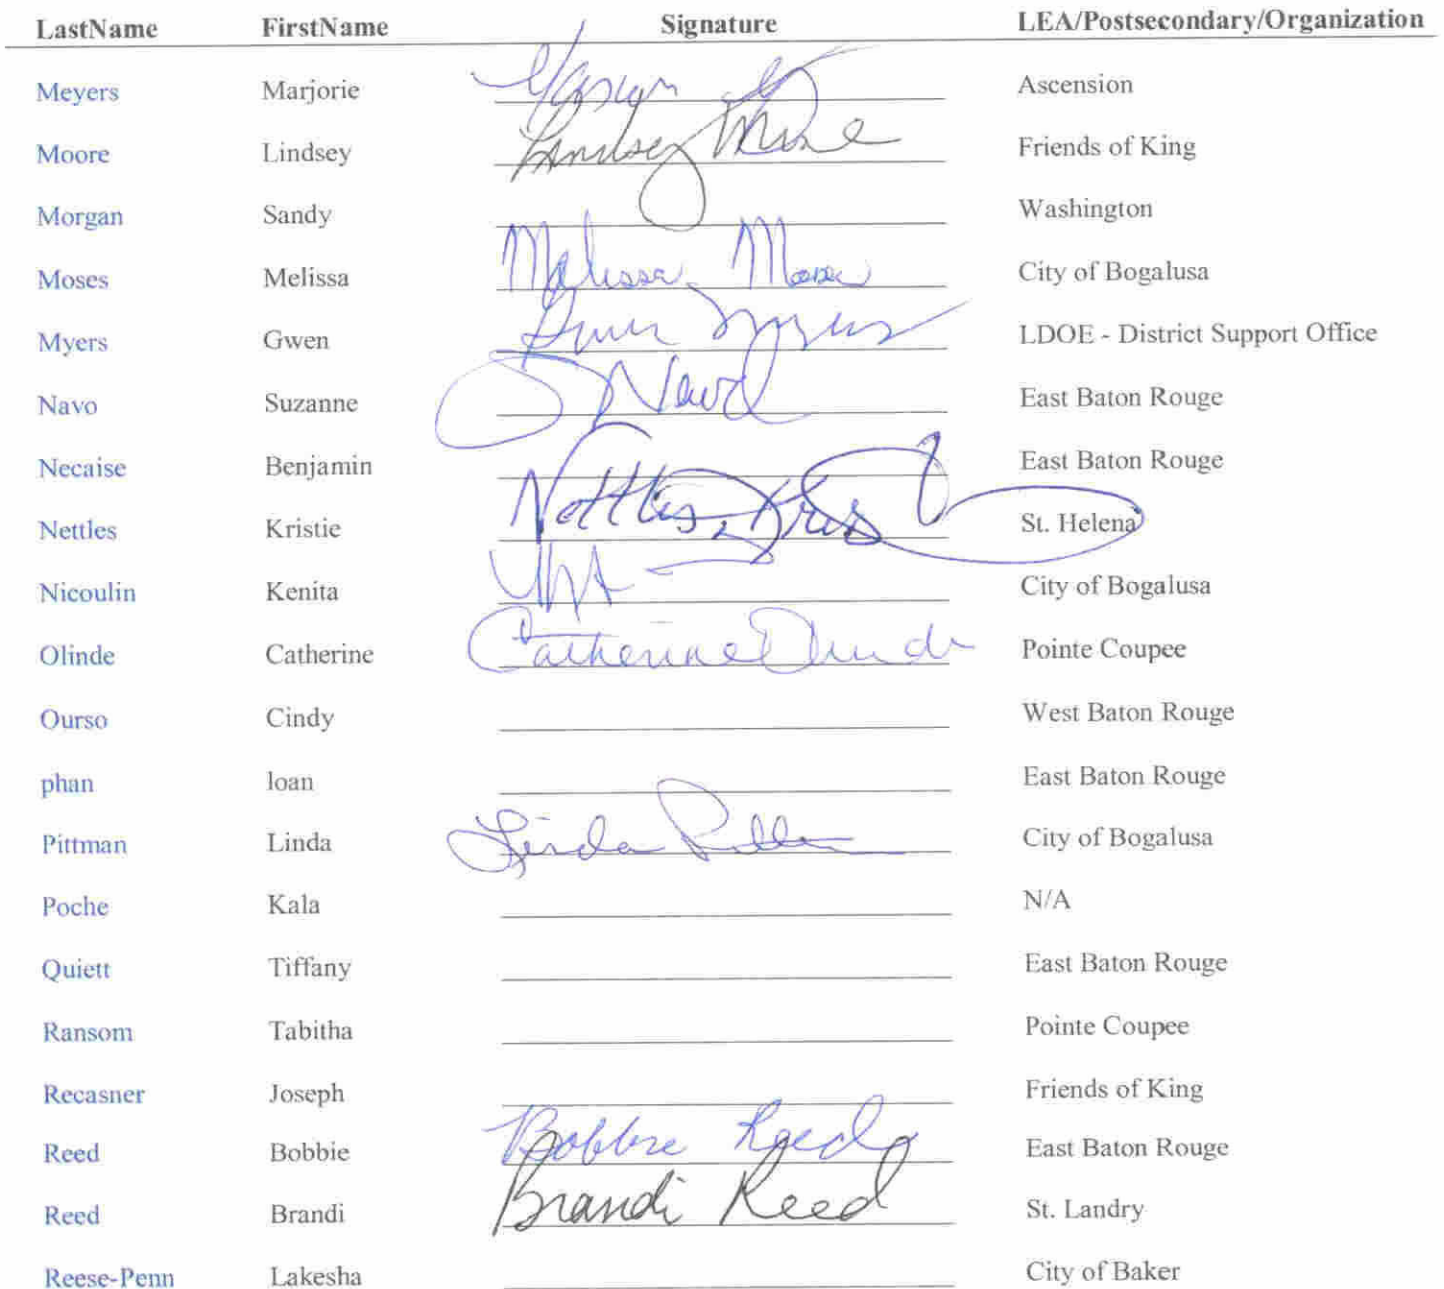 LastName FirstName Signature LEA/Postsecondary/Organization
Meyers Marjorie Ascension
Moore Lindsey Lindsey Friends of King
Morgan Sandy Washington
Moses Melissa Melissa Moses City of Bogalusa
Myers Gwen Gwen Myers LDOE - District Support Office
Navo Suzanne S Navo East Baton Rouge
Necaise Benjamin East Baton Rouge
Nettles Kristie Nettles, Kris St. Helena
Nicoulin Kenita City of Bogalusa
Olinde Catherine Catherine Olinde Pointe Coupee
Ourso Cindy West Baton Rouge
phan loan East Baton Rouge
Pittman Linda Linda City of Bogalusa
Poche Kala N/A
Quiett Tiffany East Baton Rouge
Ransom Tabitha Pointe Coupee
Recasner Joseph Friends of King
Reed Bobbie Bobbie Reed East Baton Rouge
Reed Brandi Brandi Reed St. Landry
Reese-Penn Lakesha City of Baker